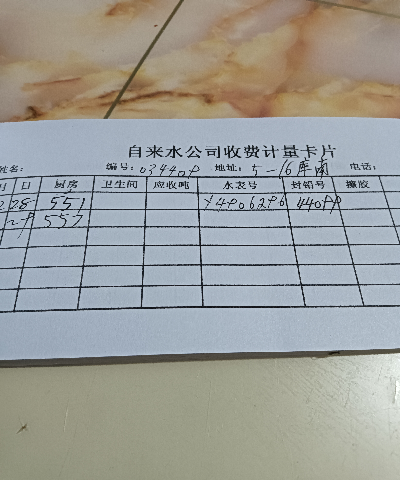 自来水公司收费计量卡片
姓名: 编号: 034409 地址: 5-16库南 电话:
月 日 厨房 卫生间 应收吨 水表号 封铅号 橡胶
2 28 551 Y4906296 44099
557